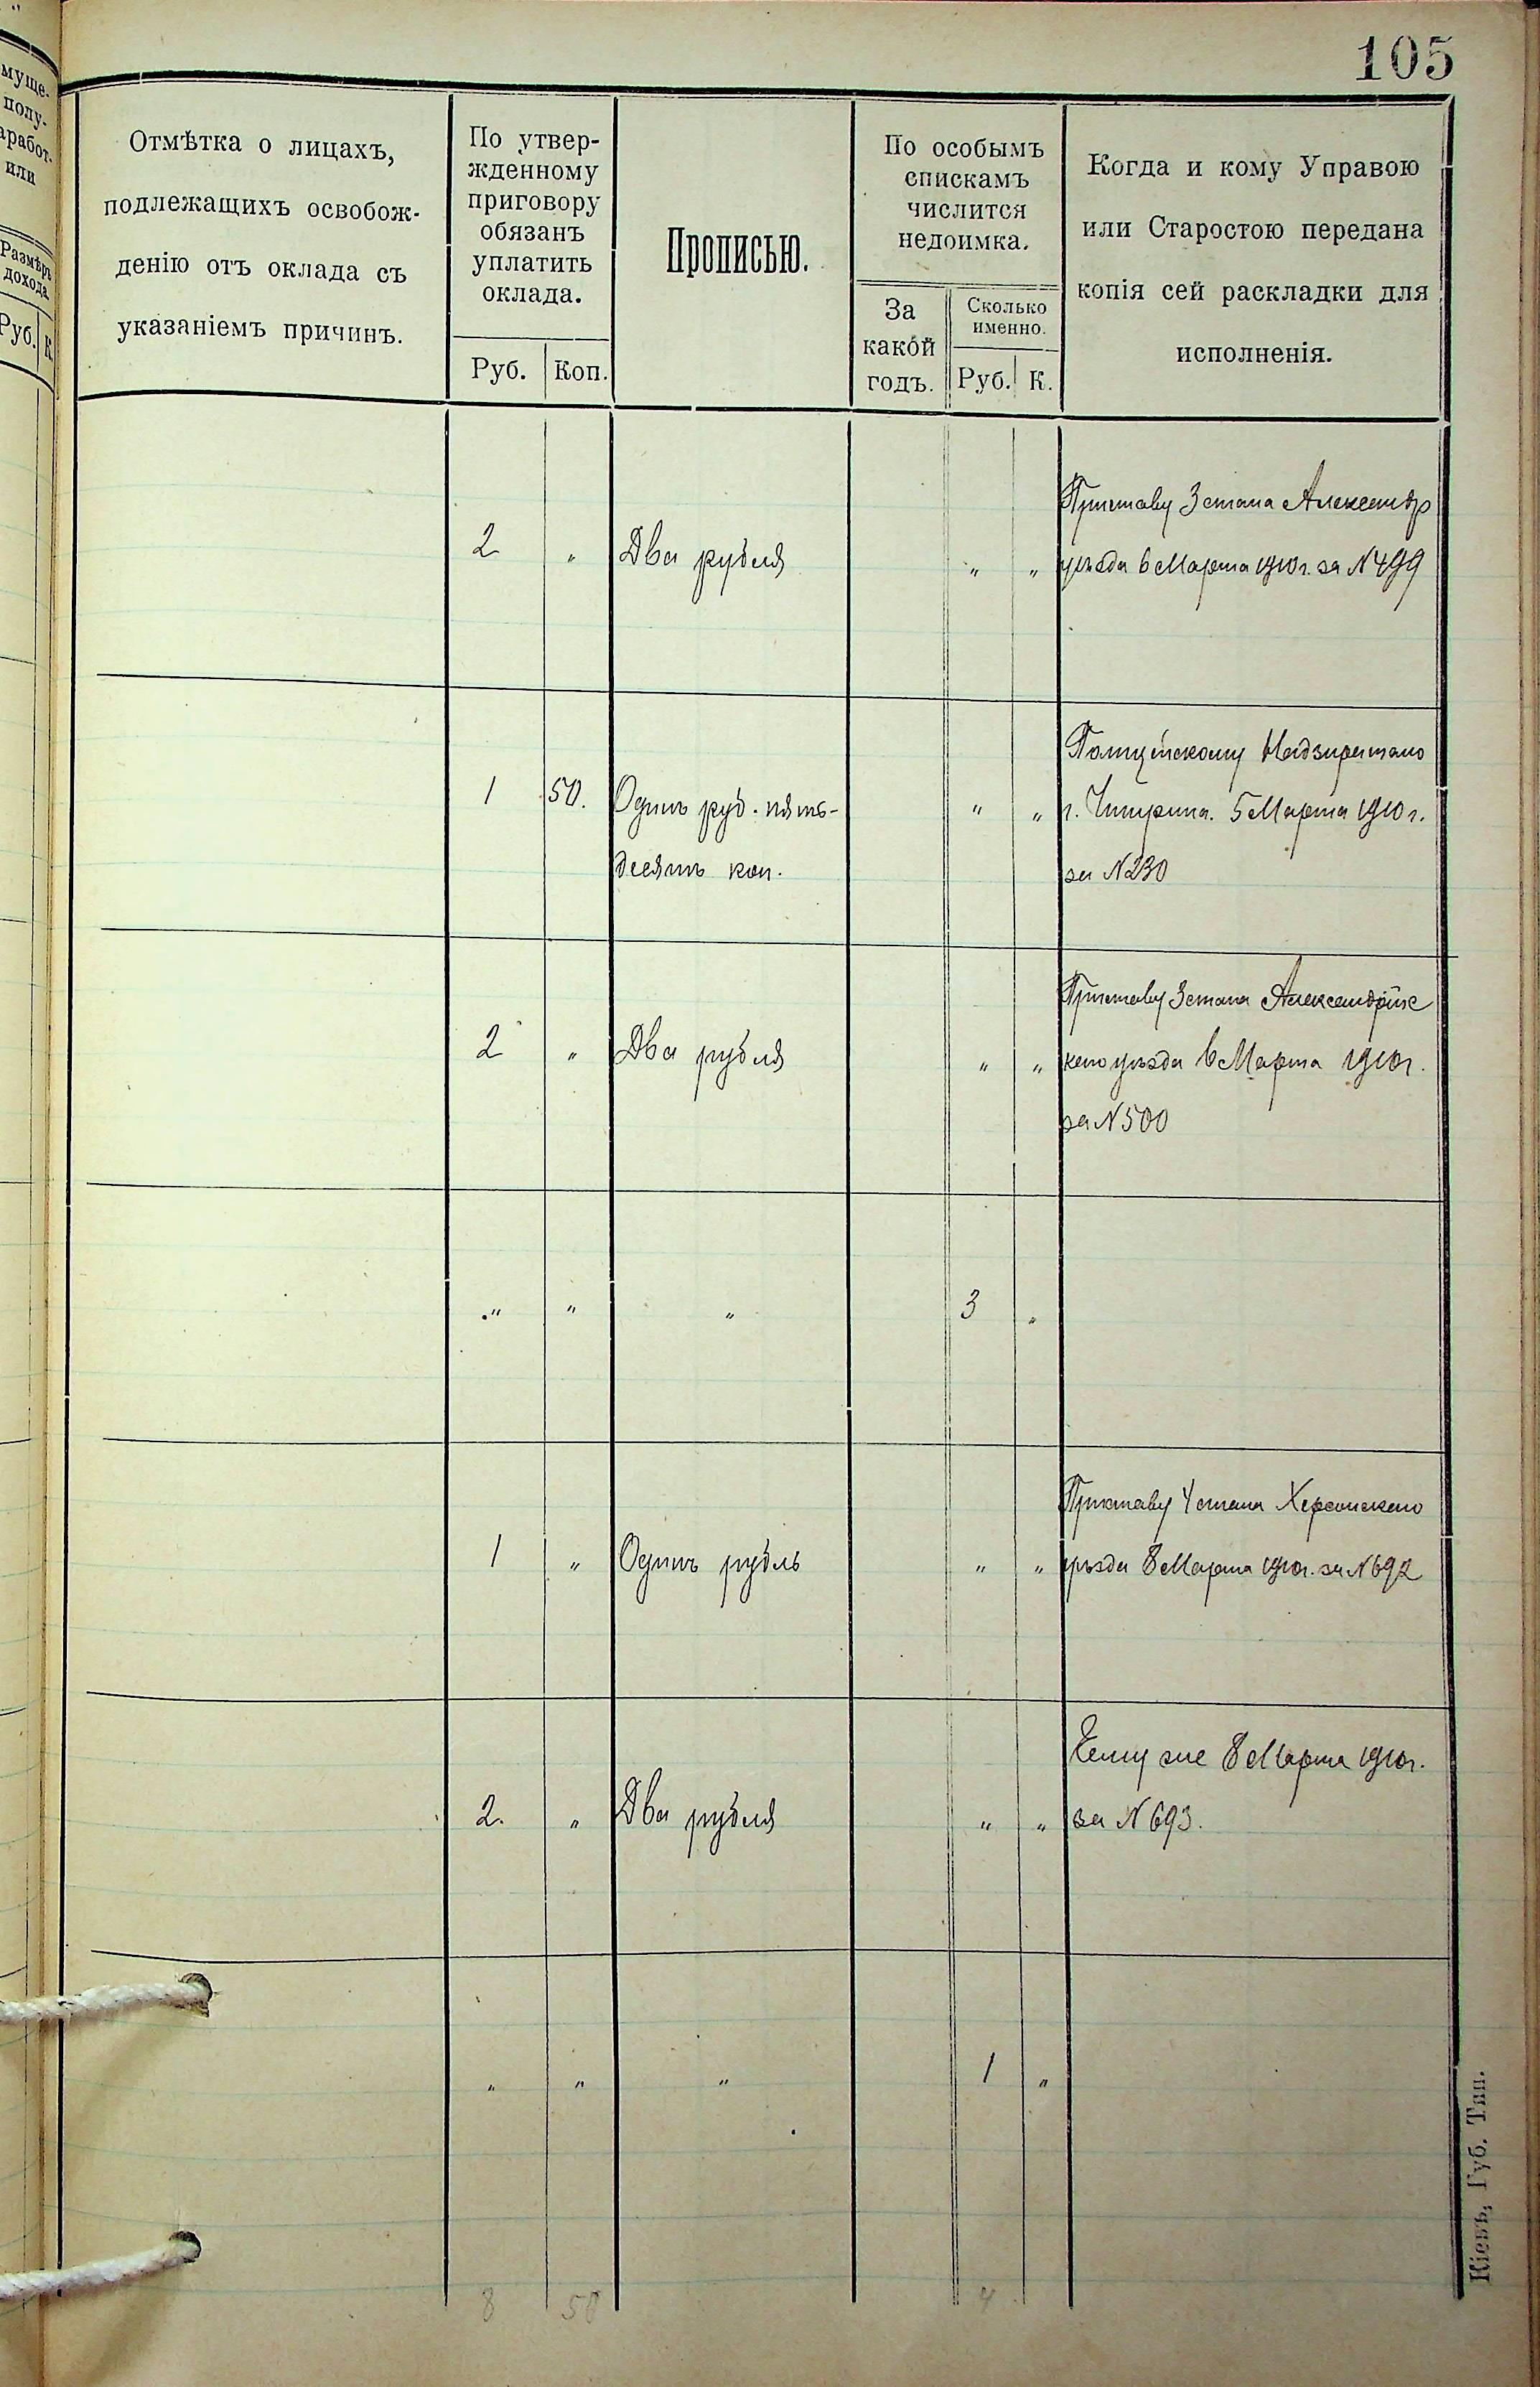 105
муще-
полу-
аработ-
или
Размѣръ
дохода
Руб. К.
Отмѣтка о лицахъ,
подлежащихъ освобож-
денію отъ оклада съ
указаніемъ причинъ.
По утвер-
жденному
приговору
обязанъ
уплатить
оклада.
Руб. Коп.
Прописью.
По особымъ
спискамъ
числится
недоимка.
За
какой
годъ.
Сколько
именно.
Руб. К.
Когда и кому Управою
или Старостою передана
копія сей раскладки для
исполненія.
Приставу 3 стана Александр
2 " Два рубля " " уѣзда 6 Марта 1910 г. за N 499
Полицейскому Надзирателю
1 50. Одинъ руб. пять- " " г. Чигирина. 5 Марта 1910 г.
десятъ коп. за N 230
Приставу 3 стана Александрійс
2 " Два рубля " " каго уѣзда 6 Марта 1910 г.
за N 500
" " " 3 "
Приставу 4 стана Херсонскаго
1 " Одинъ рубль " " уѣзда 8 Марта 1910 г. за N 692
Тому же 8 Марта 1910 г.
2. " Два рубля " " за N 693.
" " " 1 "
8 50 4
Кіевъ, Губ. Тип.